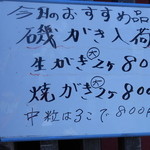 今日のおすすめ品
磯がき入荷
生がき大2ヶ800
焼がき大2ヶ80
中粒は3こで800円